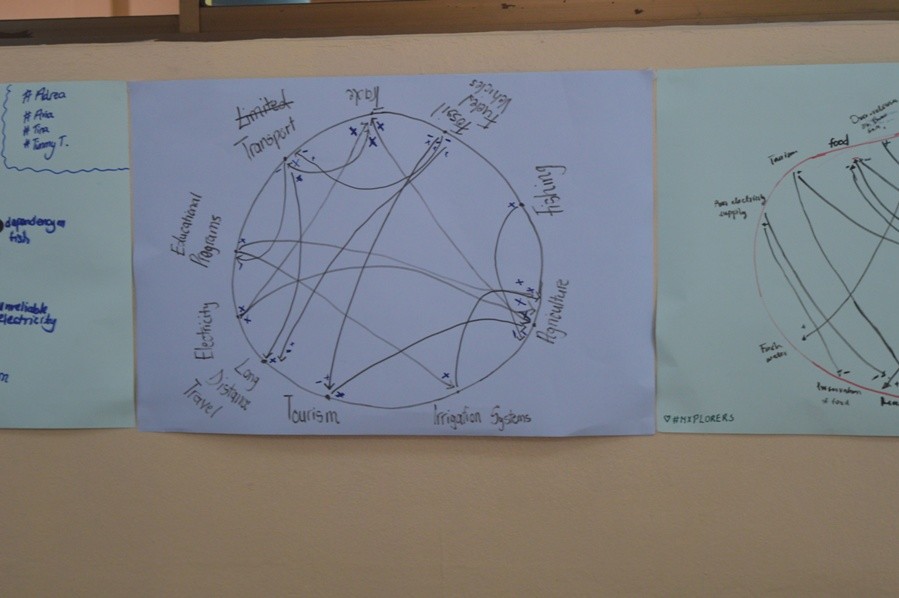 # Adrea
# Aria
# Tina
# Timmy T.
dependency on
fish
unreliable
electricity
Limited
Transport
Trade
Fossil
Fueled
Vehicles
Fishing
Agriculture
Irrigation Systems
Tourism
Long
Distance
Travel
Electricity
Educational
Programs
food
Tourism
electricity
supply
Fresh
water
of food
♡#MXPLORERS